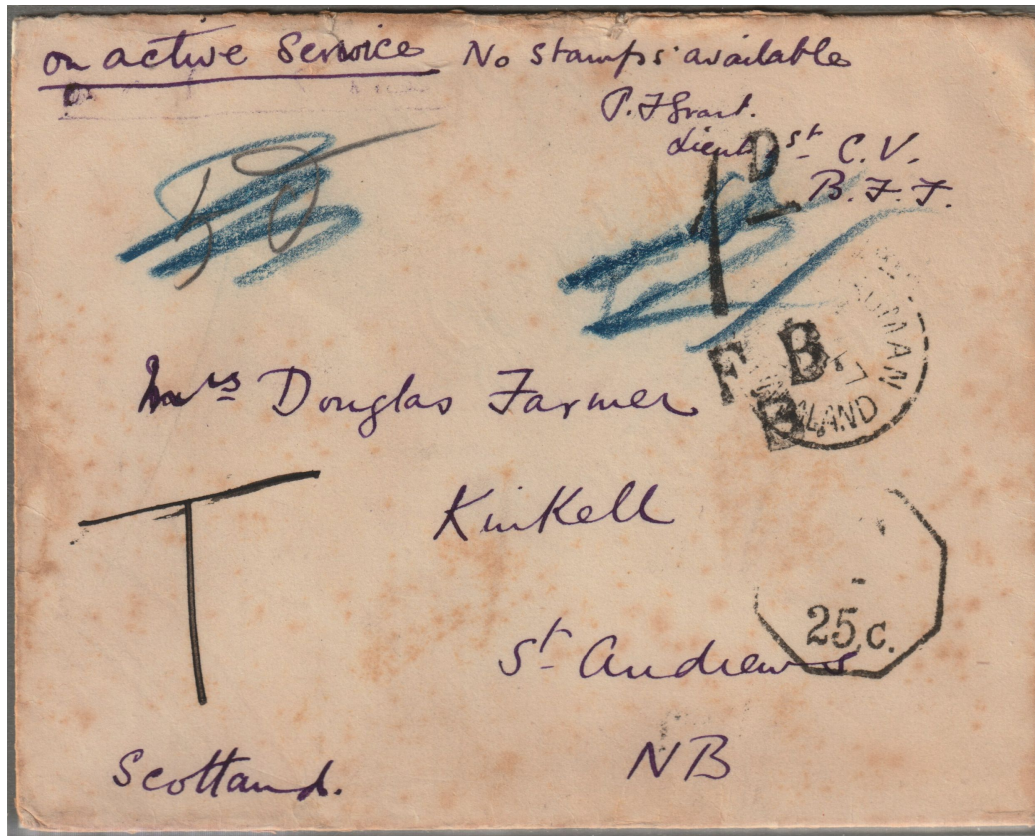 on active Service No stamps available
P. F Grant.
Lieut St C. V.
B. F. F.
1D
50
F B
B
LAND
Mrs Douglas Farmer
Kinkell
T
25 c.
St Andrews
NB
Scotland.